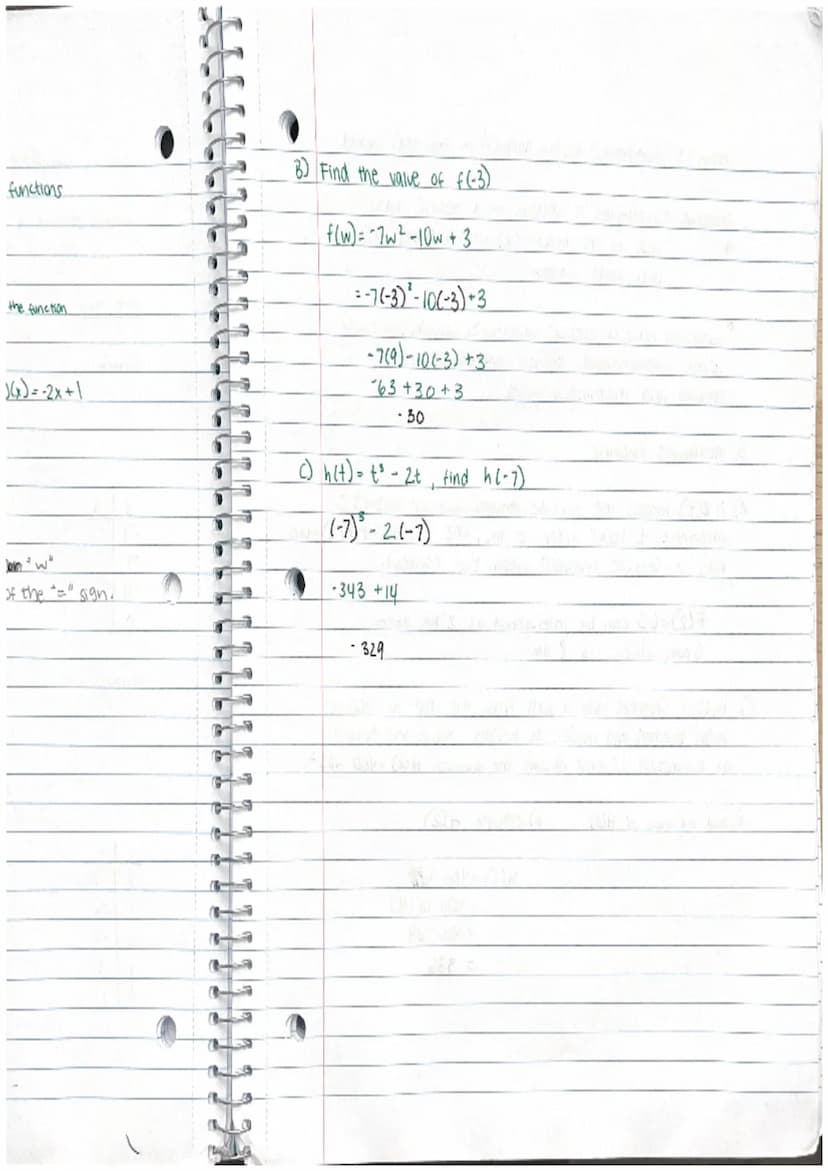 functions
the function
)(x) = -2x + 1
"w"
of the "=" sign.
B) Find the value of f(-3)
f(w) = -7w² - 10w + 3
= -7(-3)² - 10(-3) + 3
-7(9) - 10(-3) + 3
-63 + 30 + 3
-30
C) h(t) = t³ - 2t , find h(-7)
(-7)³ - 2(-7)
-343 + 14
-329